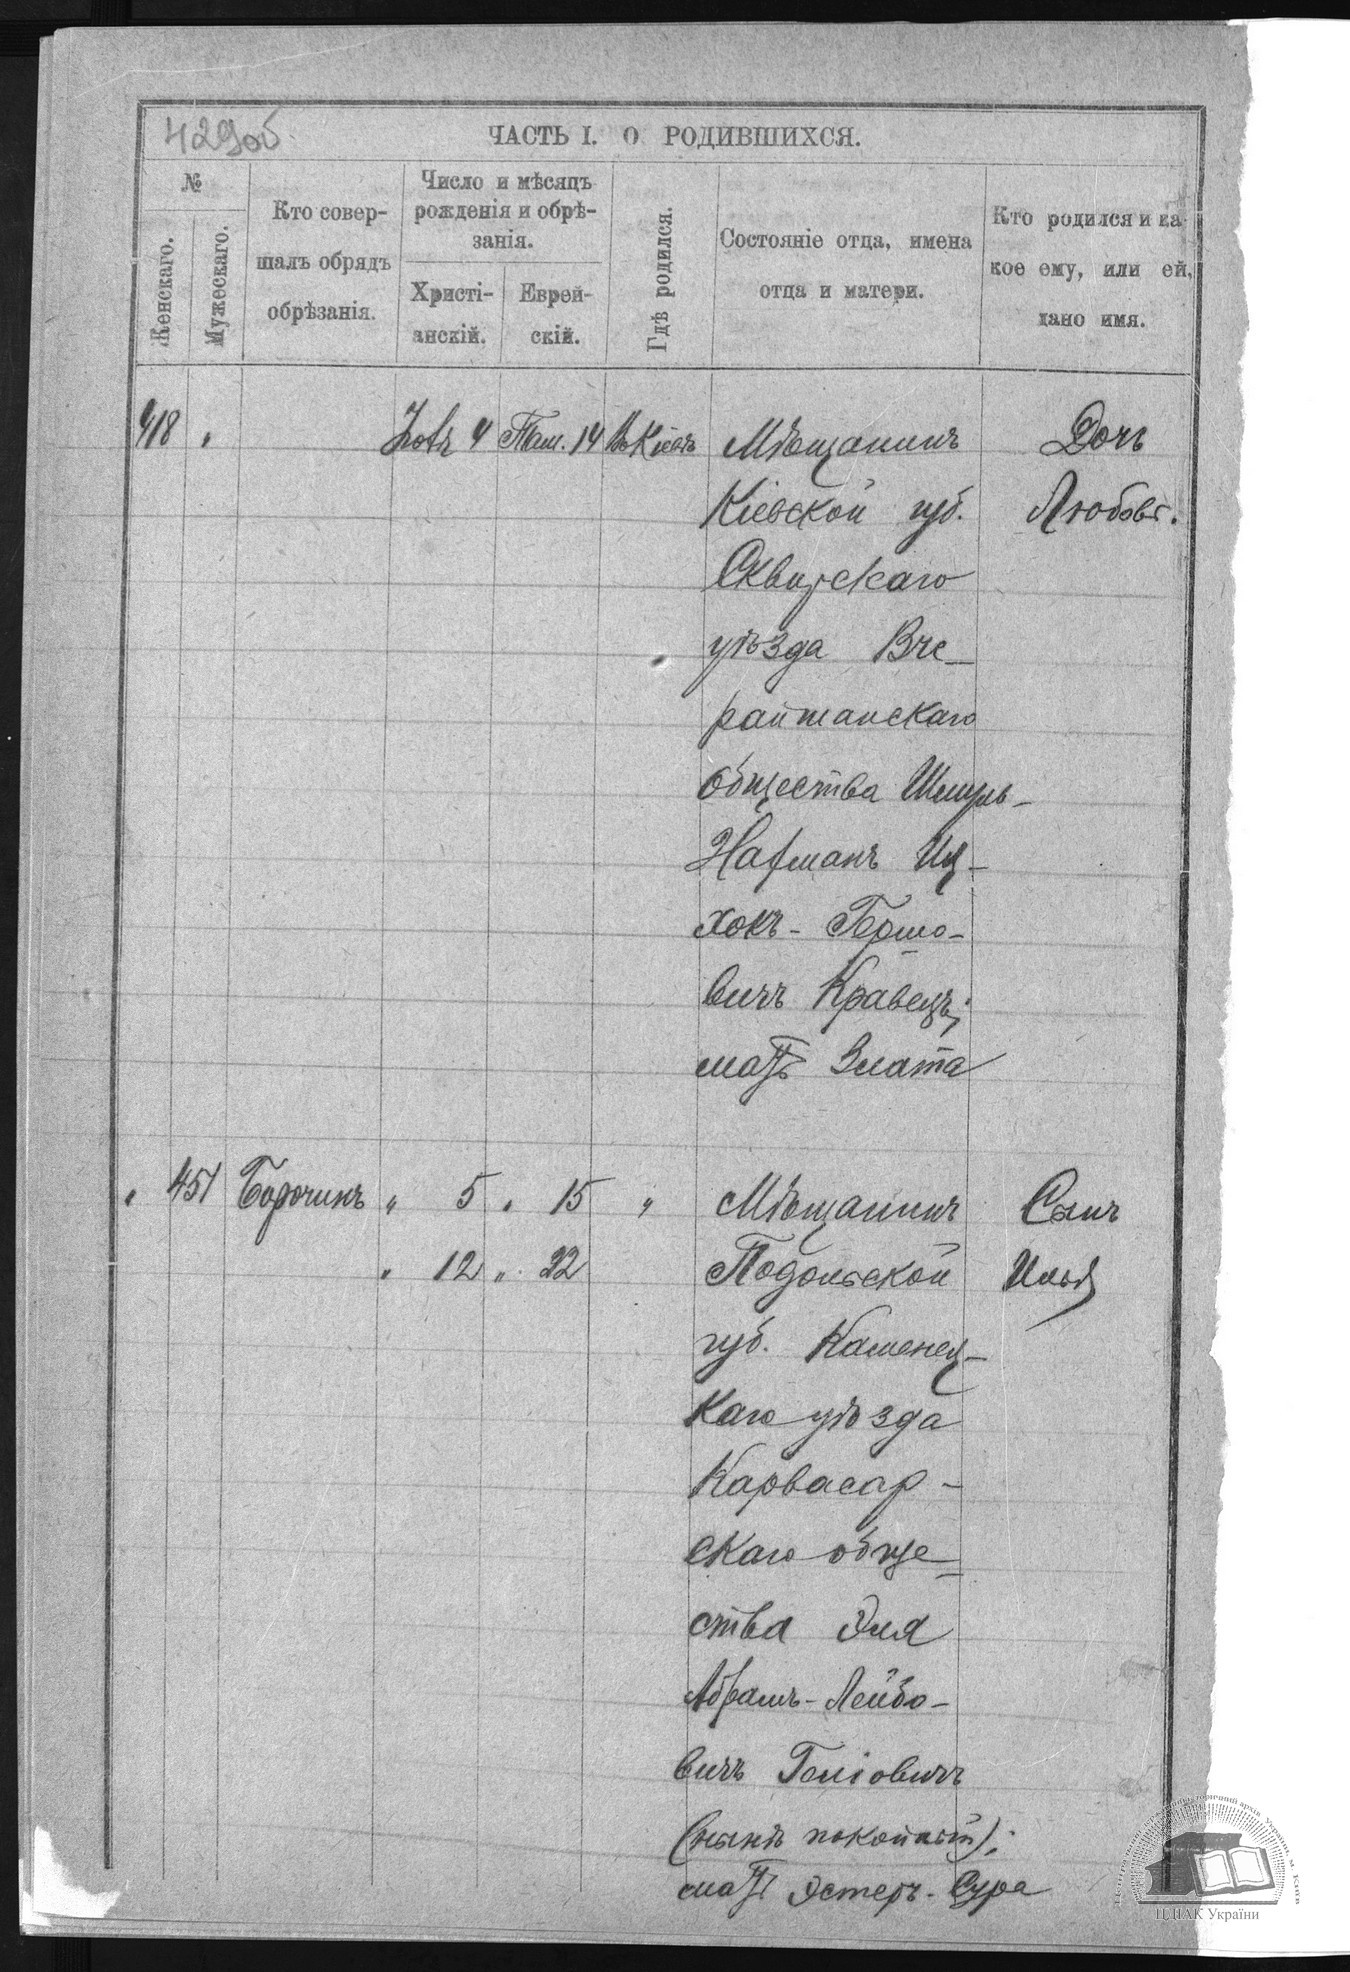 429об.
ЧАСТЬ I. О РОДИВШИХСЯ.
№
Женскаго.
Мужескаго.
Кто совер-
шалъ обрядъ
обрѣзанія.
Число и мѣсяцъ
рожденія и обрѣ-
занія.
Христі-
анскій.
Еврей-
скій.
Гдѣ родился.
Состояніе отца, имена
отца и матери.
Кто родился и ка-
кое ему, или ей,
дано имя.
418 " 4 Там. 14 Въ Кіевѣ Мѣщанинъ Дочь
Кіевской губ. Любовь.
Сквирскаго
уѣзда Вче-
райшанскаго
общества Шмуль-
Нахманъ Иц-
хокъ-Гершо-
вичъ Кравецъ;
мать Злата
" 451 " 5 " 15 " Мѣщанинъ Сынъ
" 12 " 22 Подольской Илья
губ. Каменец-
каго уѣзда
Карвасар-
скаго обще-
ства Эля
Абрамъ-Лейбо-
вичъ
(нынѣ покойный);
мать Эстеръ-Сура
ЦДІАК України